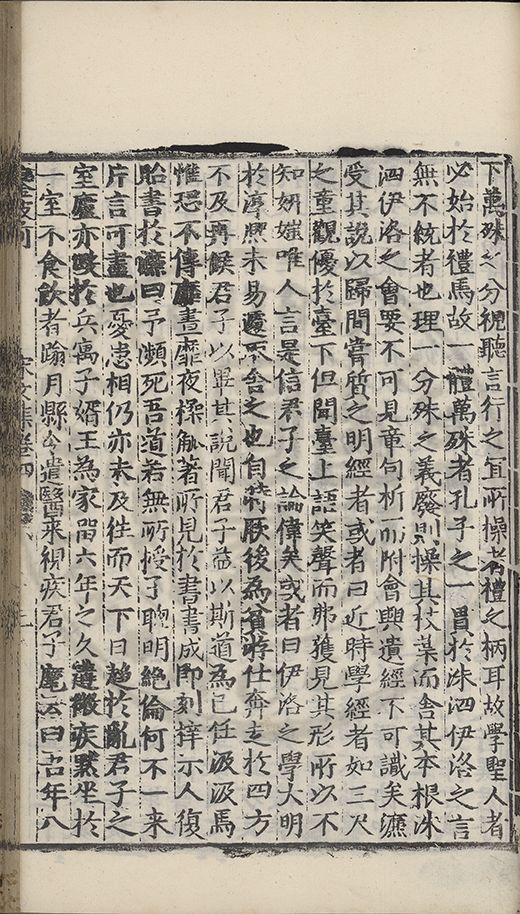 下萬殊之分視聽言行之宜所操者禮之柄耳故學聖人者
必始於禮焉故一體萬殊者孔子之一貫於洙泗伊洛之言
無不統者也理一分殊之義廢則操其枝葉而舍其本根洙
泗伊洛之會要不可見章句析而附會興遺經不可識矣濂
受其說以歸間嘗質之明經者或者曰近時學經者如三尺
之童觀優於臺下但聞臺上語笑聲而弗獲見其形所以不
知妍媸唯人言是信君子之論偉矣或者曰伊洛之學大明
於淳熙未易遽不舍之也自厥後為貧游仕奔走於四方
不及再候君子以畢其說聞君子益以斯道為己任汲汲焉
惟恐不傳靡晝靡夜操觚著所見於書書成即刻梓示人復
貽書於濂曰予瀕死吾道若無所授子聰明絕倫何不一來
片言可盡也憂患相仍亦未及往而天下日趨於亂君子之
室廬亦燬於兵寓子婿王為家留六年之久遘微疾默坐於
一室不食飲者踰月縣令遣醫來視疾君子麾去曰吉年八
宋文集卷四